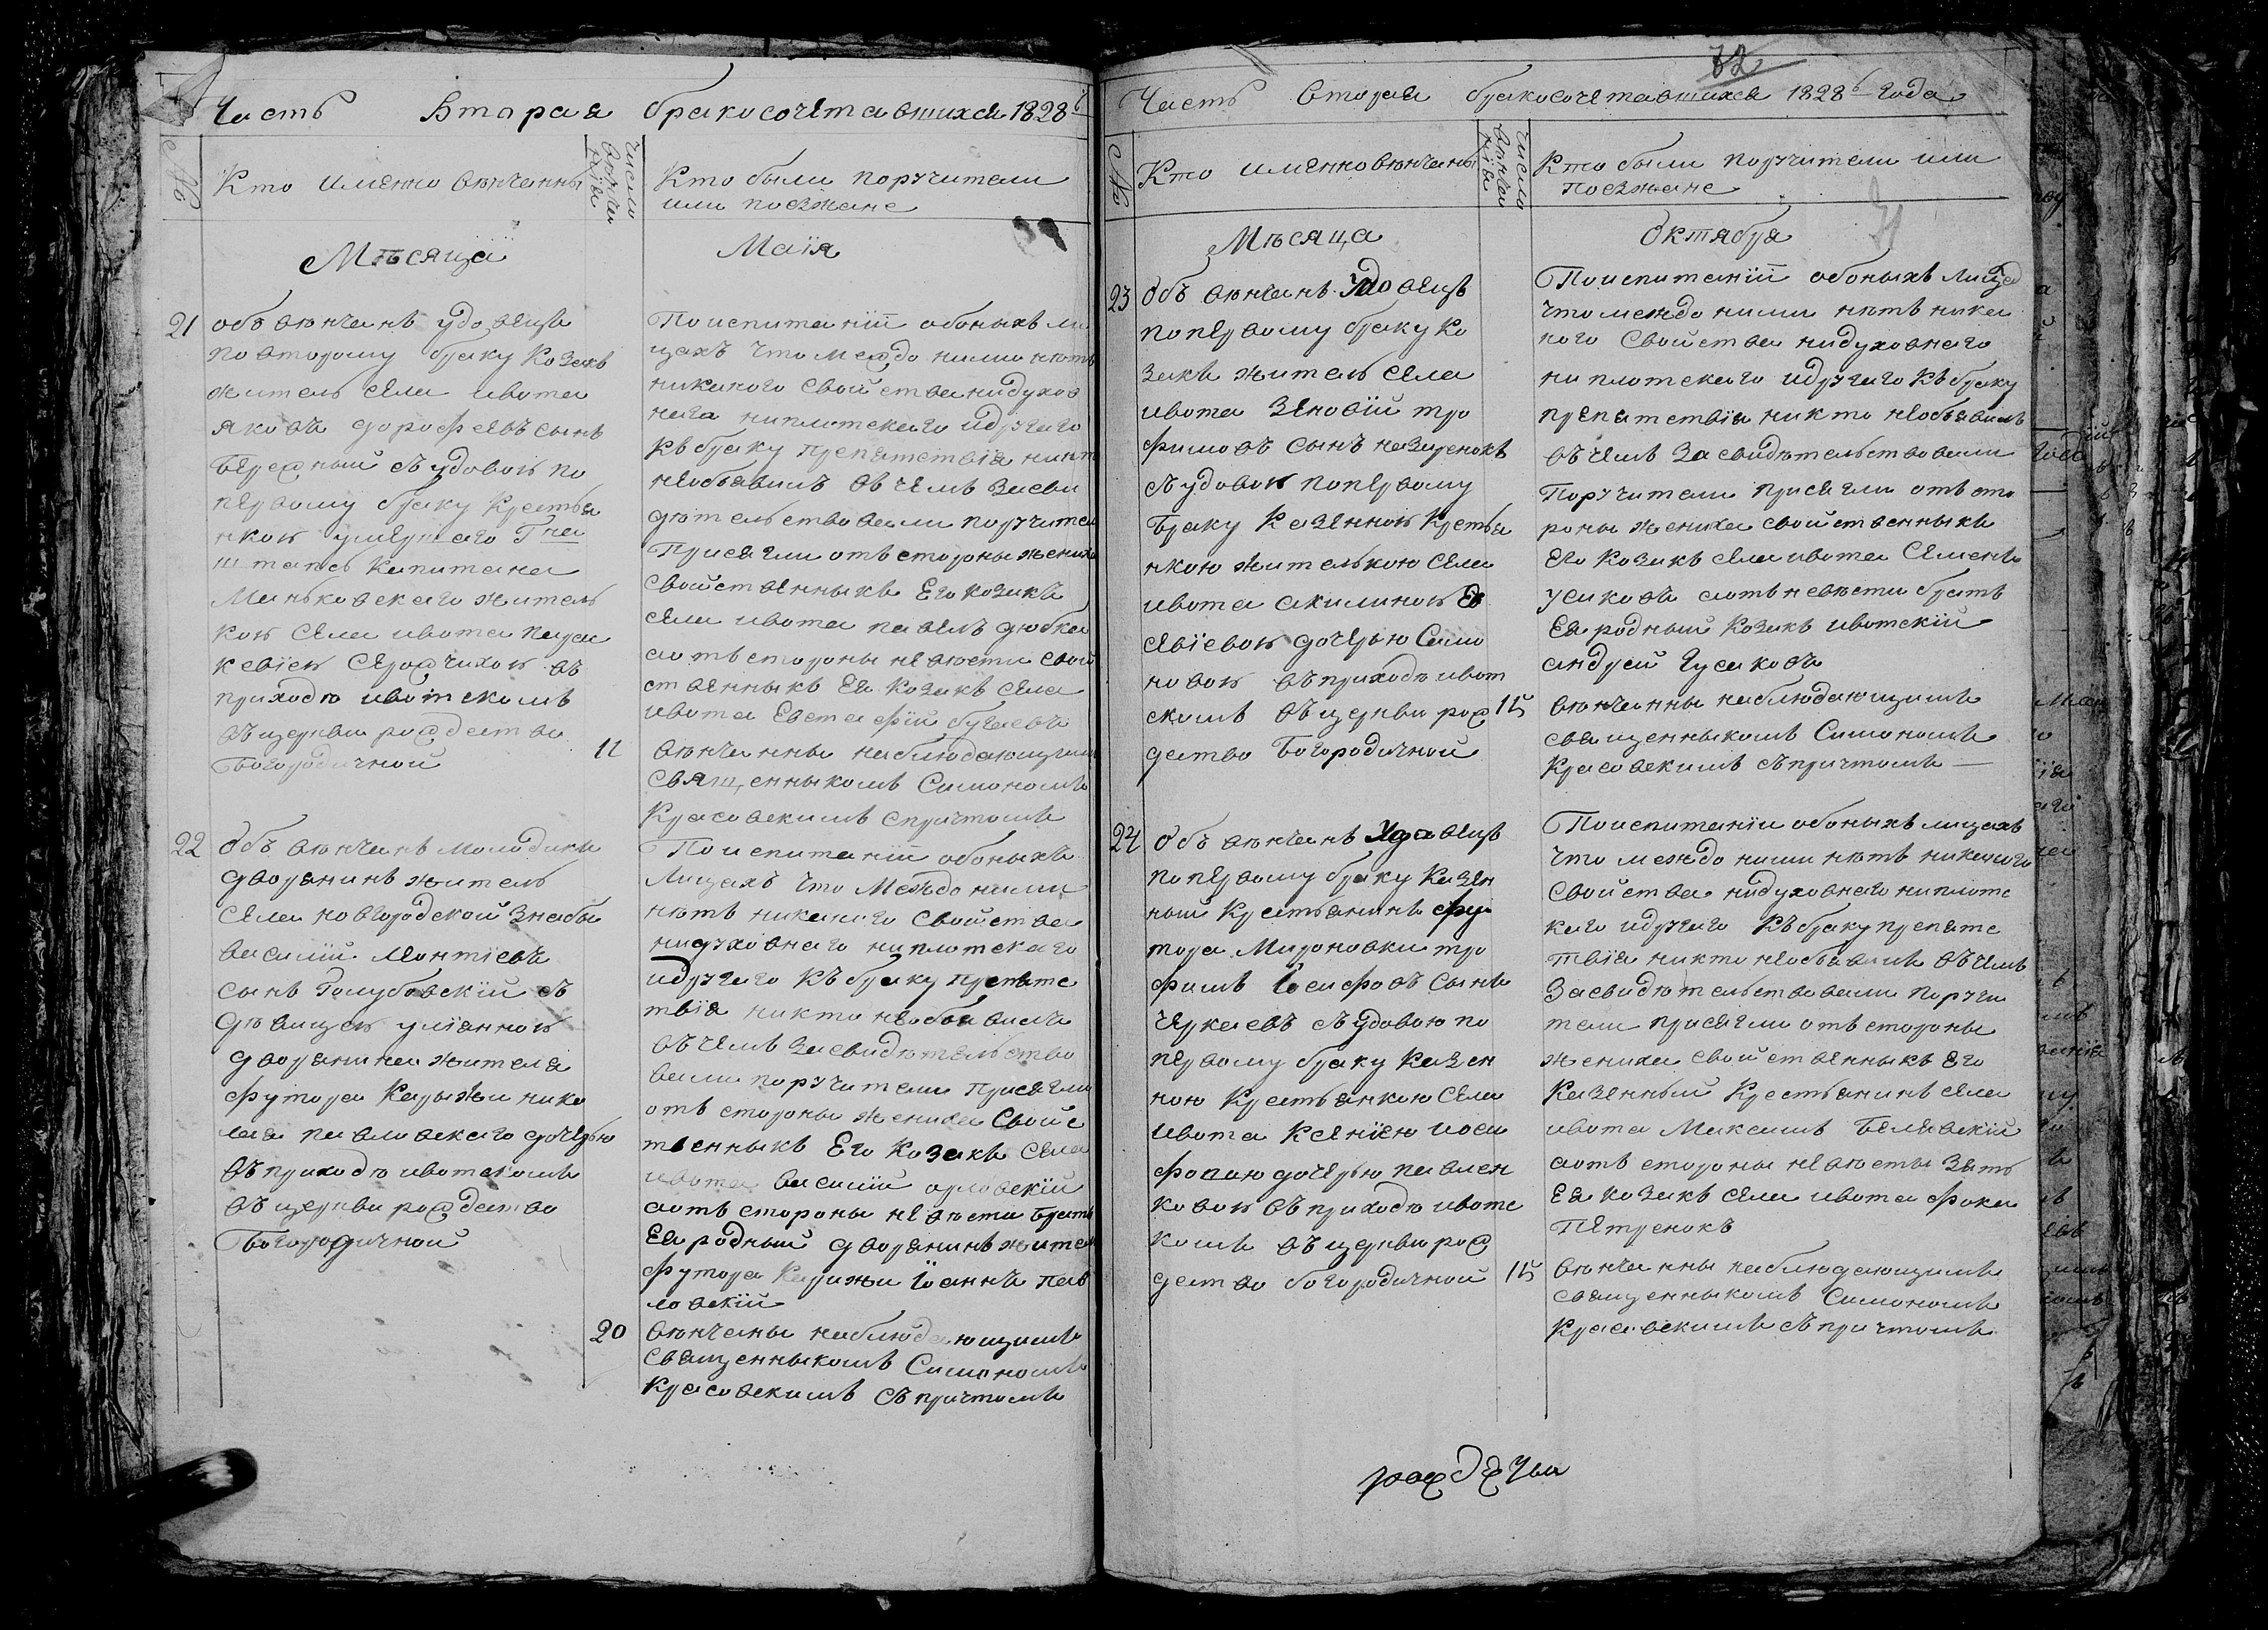 Часть Вторая бракосочетавшихся 1828
№
Кто именно венчанны
число венчанїя
Кто были поручители
или поезжане
Мѣсяца Маїя
21
обвѣнчанъ удовецъ
по второму браку козакъ
житель села ивота
яковъ дорофеевъ сынъ
съ удовою по
первому браку крестья
нкою умершаго Гна
штапсъ капитана
Маньковскаго житель
кою села ивота пара
въ
приходѣ ивотскомъ
въ церкви рождество
Богородичной
11
По испитанїи обоныхъ ли
цахъ что между ними нѣтъ
никакого свойства ни духов
наго ни плотскаго и другаго
къ браку препятствїя никто
необъявилъ въ чемъ засви
дѣтельствовали поручители
Присягли отъ стороны жениха
свойственныкъ Его козакъ
села ивота павелъ дюбка
а отъ стороны невѣсти свой
ственныкъ Ея козакъ села
ивота Евстафїй бугаевъ
вѣнчанны наблюдающимъ
Священныкомъ Симономъ
Красовскимъ спричтомъ
22
Обвѣнчанъ молодикъ
дворанинъ житель
села новгородской знобы
василїй Леонтїевъ
сынъ Голубовскїй съ
дѣвицею улїанною
дворанина жителя
футора Карыжи нико
лая павловскаго дочерью
въ приходѣ ивотскомъ
въ церкви рождество
Богородичной
20
По испитанїи обоныхъ
Лицахъ что Между ними
нѣтъ никакого свойства
ни духовнаго ни плотскаго
и другаго къ браку препятс
твїя никто необъявилъ
въ чемъ засвидѣтельство
вали поручители присягли
отъ стороны жениха Свойс
твенныкъ Его козакъ села
ивота василїй орловскїй
а отъ стороны невѣсти братъ
Ея родный дворанинъ житель
футора Карижи їоаннъ пав
ловскїй
вѣнчаны наблюдающимъ
священныкомъ Симономъ
Красовскимъ съ причтомъ
32
Часть вторая бракосочетавшихся 1828 года
№
Кто именно вѣнчаны
число вѣнчанїя
Кто были поручители или
поезжане
Мѣсяца Октября
23
Обвѣнчанъ удовецъ
по первому браку ко
закъ житель села
ивота Зеновїй тро
фимовъ сынъ назаренокъ
съ удовою по первому
браку казенною крестья
нкою жителькою села
ивота акилиною Ев
севїевою дочерью Само
новою въ приходѣ ивот
скомъ въ церкви рож
дество Богородичной
15
По испитанїи обоныхъ лицах
что между ними нѣтъ ника
кого свойства ни духовнаго
ни плотскаго и другаго къ браку
препятствїя никто необъявилъ
въ чемъ засвидѣтельствовали
Поручители присягли отъ сто
роны жениха свойственныкъ
Его козакъ села ивота Семенъ
усиковъ а отъ невѣсти братъ
Ея родный козакъ ивотскїй
андрей гусаковъ
вѣнчанны наблюдающимъ
священныкомъ Симономъ
Красовскимъ съ причтомъ
24
Обвѣнчанъ удовецъ
по первому браку казен
ный крестьянинъ фу
тора Мироновки тро
фимъ Іосифовъ сынъ
Черкасвъ съ удовою по
первому браку казен
ною крестьянкою села
ивота Ксенїею иоси
фовою дочерью павлен
ковою въ приходѣ ивотс
комъ въ церкви рож
дество богородичной
15
По испитанїи обоныхъ лицахъ
что между ними нѣтъ никакого
свойства ни духовнаго ни плотс
каго и другаго къ браку препятс
твїя никто необъявилъ въ чемъ
Засвидѣтельствовали поручи
тели присягли отъ стороны
жениха свойственныкъ Его
Казенный крестьянинъ села
ивота Максимъ Белявскїй
а отъ стороны невѣсты зять
Ея козакъ села ивота фока
Петренокъ
вѣнчанны наблюдающимъ
священныкомъ Симономъ
Красовскимъ съ причтомъ